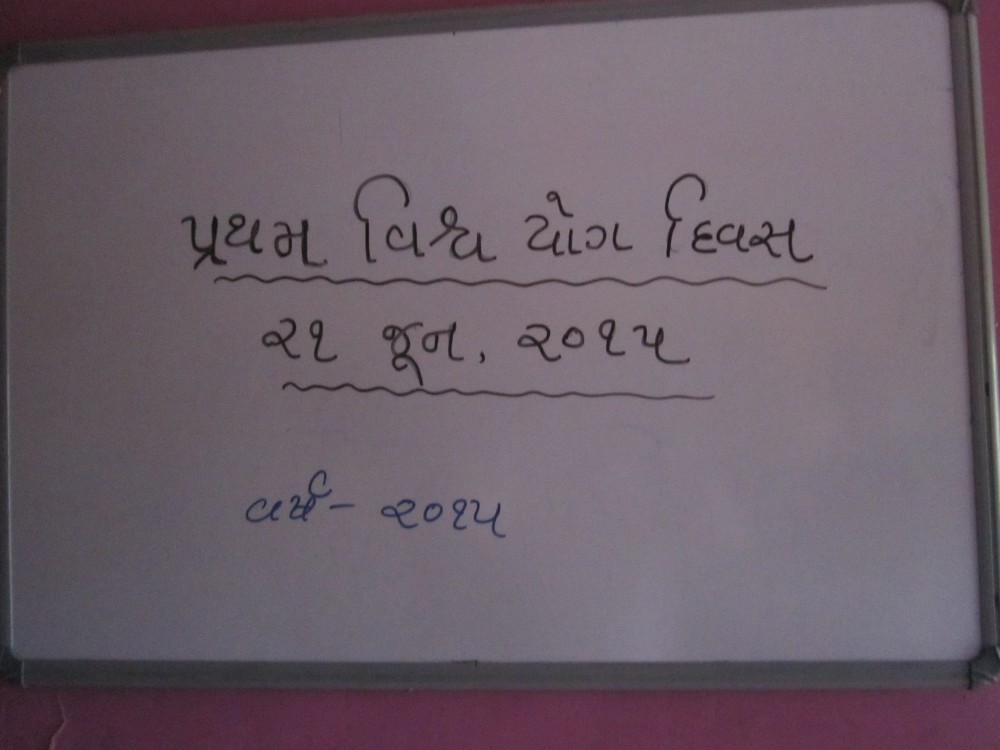 પ્રથમ વિશ્વ યોગ દિવસ
૨૧ જૂન, ૨૦૧૫
વર્ષ - ૨૦૧૫